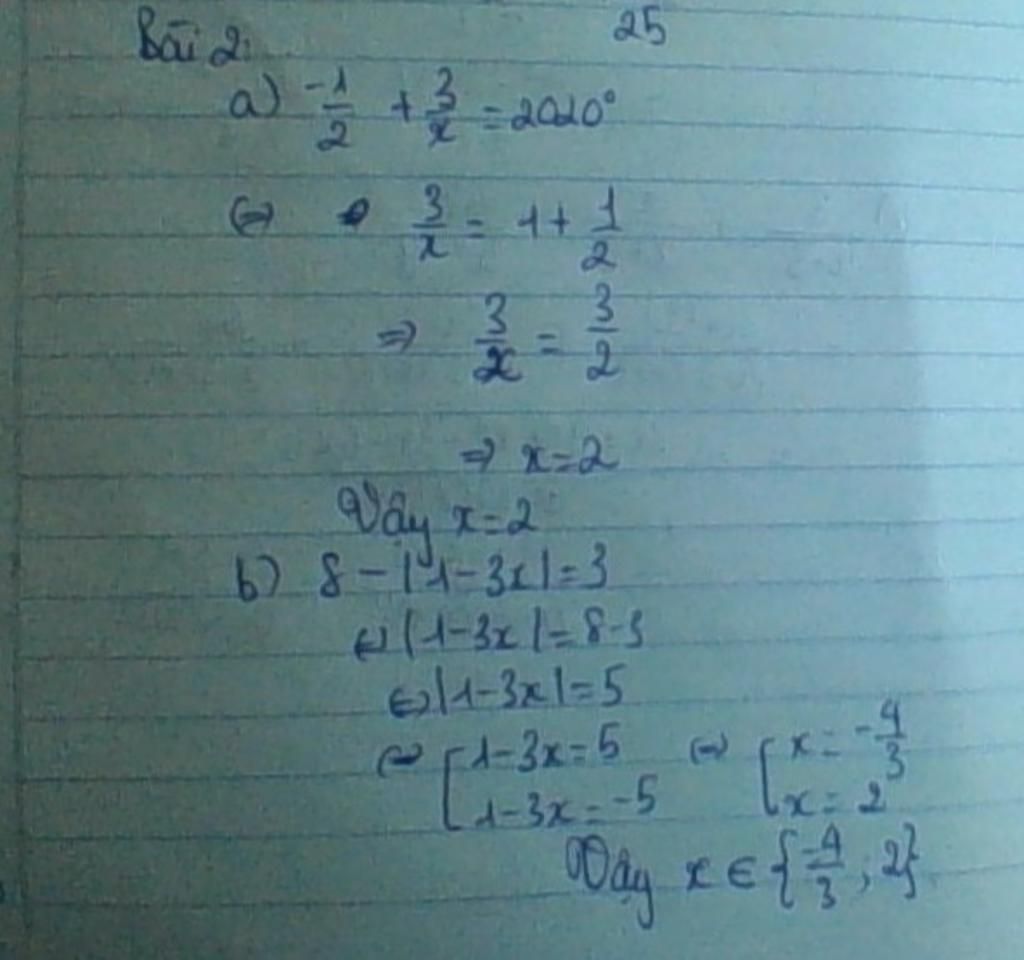 25
Bài 2:
a) -1/2 + 3/x = 2020°
⇔ 3/x = 1 + 1/2
⇒ 3/x = 3/2
⇒ x = 2
Vậy x = 2
b) 8 - |1 - 3x| = 3
⇔ |1 - 3x| = 8 - 3
⇔ |1 - 3x| = 5
⇔ [ 1 - 3x = 5 ⇔ [ x = -4/3
1 - 3x = -5 x = 2
Vậy x ∈ {-4/3 ; 2}